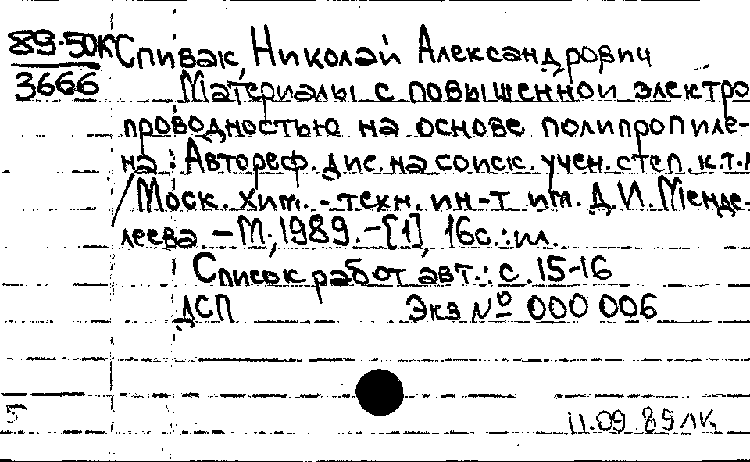 89-50К Спивак, Николай Александрович
3666 Материалы с повышенной электро
проводностью на основе полипропиле-
на : Автореф. дис. на соиск. учен. степ. к.т.н
/ Моск. хим.-техн. ин-т им. Д.И. Менде-
леева. – М., 1989. – [1], 16с. : ил.
Список работ авт.: с. 15-16
ДСП Экз № 000 006
5 11.09 89 ЛК